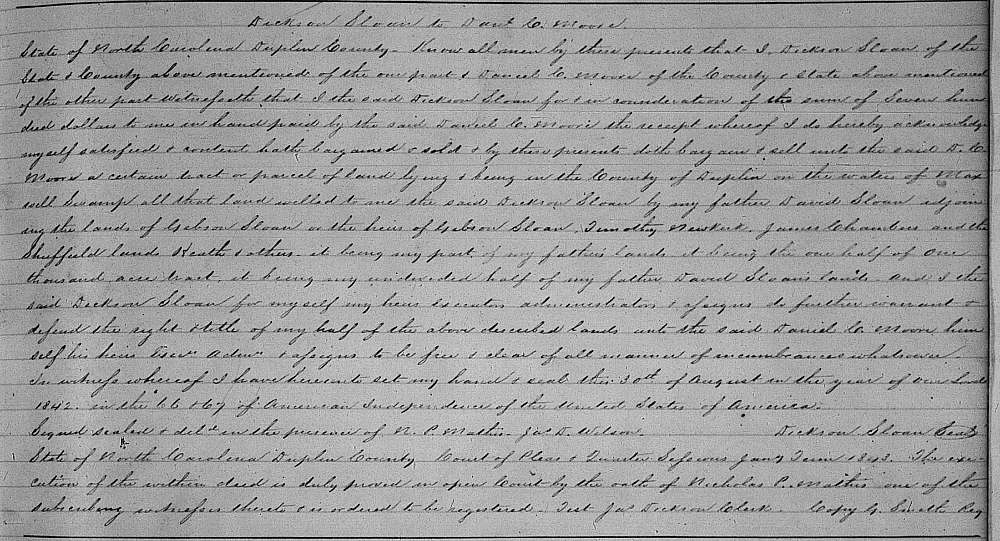 Dickson Sloan to Danl C. Moore
State of North Carolina Duplin County - Know all men by these presents that I, Dickson Sloan of the
State & County above mentioned of the one part & Daniel C. Moore of the County & State above mentioned
of the other part Witnesseth that I the said Dickson Sloan for & in consideration of the sum of Seven hun
dred dollars to me in hand paid by the said Daniel C. Moore the receipt whereof I do hereby acknowledge
myself satisfied & content hath bargained & sold & by these presents doth bargain & sell unto the said D. C.
Moore a certain tract or parcel of land lying & being in the County of Duplin on the waters of Max
well Swamp all that land willed to me the said Dickson Sloan by my father David Sloan adjoin
ing the lands of Gibson Sloan or the heirs of Gibson Sloan, Timothy Newkirk, James Chambers and the
Sheffield lands Heath & others. it being my part of my fathers lands it being the one half of One
thousand acre tract it being my undivided half of my father David Sloans lands. and I the
said Dickson Sloan for myself my heirs executors administrators & assigns do further warrant &
defend the right & title of my half of the above described lands unto the said Daniel C. Moore him
self his heirs Exers Admrs & assigns to be free & clear of all manner of incumbrances whatsoever.
In witness whereof I have hereunto set my hand & seal this 30th of August in the year of our Lord
1842. in the 66 & 67 of American Independence of the United States of America.
Signed sealed & deld in the presence of N. P. Mathis. Jas D. Wilson. Dickson Sloan Seal
State of North Carolina Duplin County Court of Pleas & Quarter Sessions Jany Term 1843. The exe-
cution of the within deed is duly proved in open Court by the oath of Nicholas P. Mathis one of the
subscribing witnesses thereto & is ordered to be registered. Test Jas Dickson Clerk. Copy G. Smith Reg